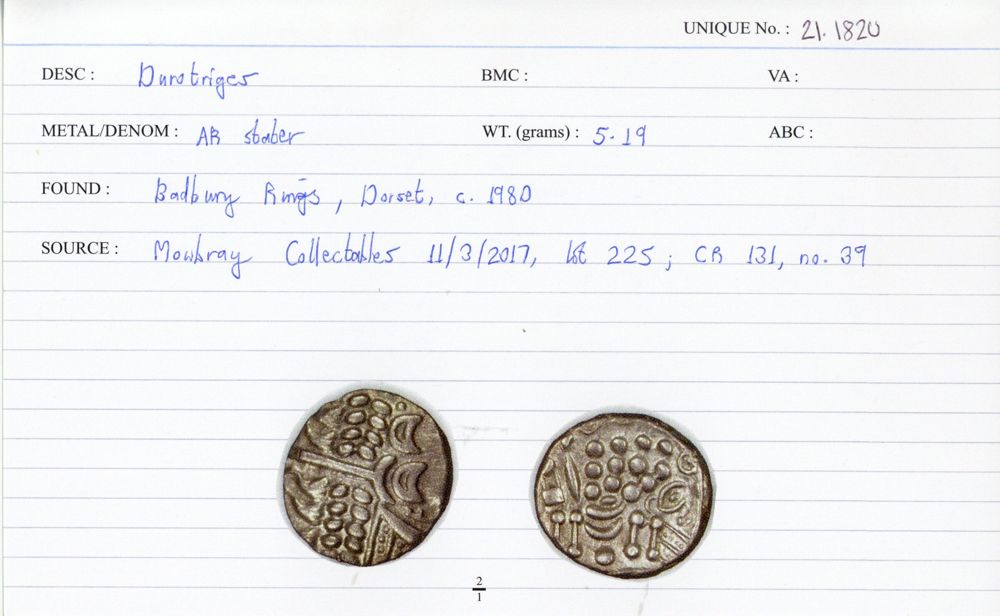 UNIQUE No. : 21.1820
DESC : Durotriges BMC : VA :
METAL/DENOM : AR stater WT. (grams) : 5.19 ABC :
FOUND : Badbury Rings, Dorset, c. 1980
SOURCE : Mowbray Collectables 11/3/2017, lot 225; CR 131, no. 39
2
1